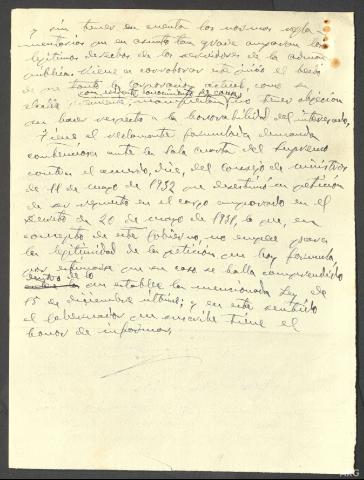 y sin tener en cuenta las normas regla-
mentarias que en asunto tan grave amparan los
legítimos derechos de los servidores de la admon
pública. Viene a corroborar
de que tanto la Corporación actual, como su
con
alcalde tener objeción
que hacer respecto a la honorabilidad del interesado.
Tiene el reclamante formulada demanda
contenciosa ante la Sala cuarta del Supremo
contra el acuerdo, del Consejo de ministros
de 11 de mayo de 1932 que desestimó su petición
de ser repuesto en el cargo amparado en el
Decreto de 20 de mayo de 1931, lo que, en
concepto de este Gobierno no empece para
la legitimidad de la petición que hoy formula
por estimarse que su caso se halla comprendido
dentro de lo
que establece la mencionada Ley de
15 de diciembre último; y en este sentido
el Gobernador que suscribe tiene el
honor de informar.
ARG